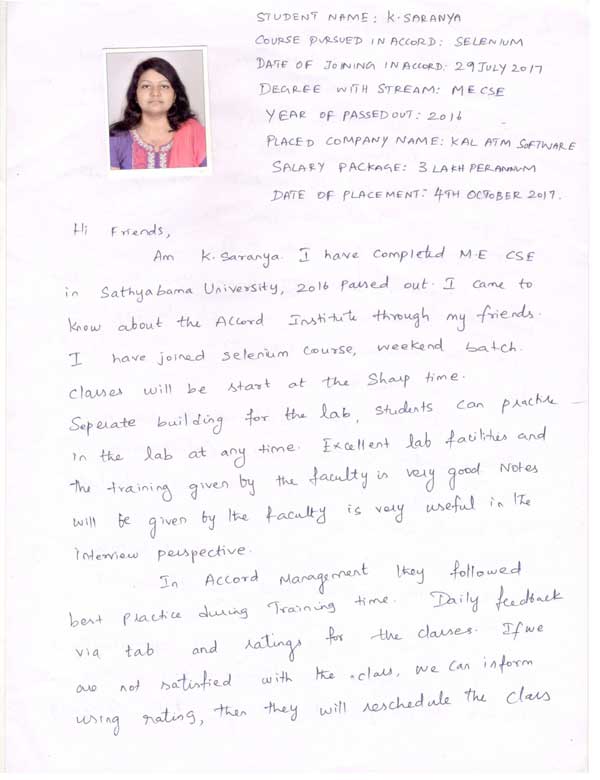 STUDENT NAME: K.SARANYA
COURSE PURSUED IN ACCORD: SELENIUM
DATE OF JOINING IN ACCORD: 29 JULY 2017
DEGREE WITH STREAM: ME CSE
YEAR OF PASSED OUT: 2016
PLACED COMPANY NAME: KAL ATM SOFTWARE
SALARY PACKAGE: 3 LAKH PER ANNUM
DATE OF PLACEMENT: 4TH OCTOBER 2017.
Hi Friends,
Am K.Saranya. I have completed M.E CSE
in Sathyabama University, 2016 Passed out. I came to
know about the Accord Institute through my friends.
I have joined selenium course, weekend batch.
Classes will be start at the Sharp time.
Seperate building for the lab, students can practise
in the lab at any time. Excellent lab facilities and
the training given by the faculty is very good Notes
will be given by the faculty is very useful in the
interview perspective.
In Accord Management they followed
best practice during Training time. Daily feedback
via tab and ratings for the classes. If we
are not satisfied with the class, we can inform
using rating, then they will reschedule the class